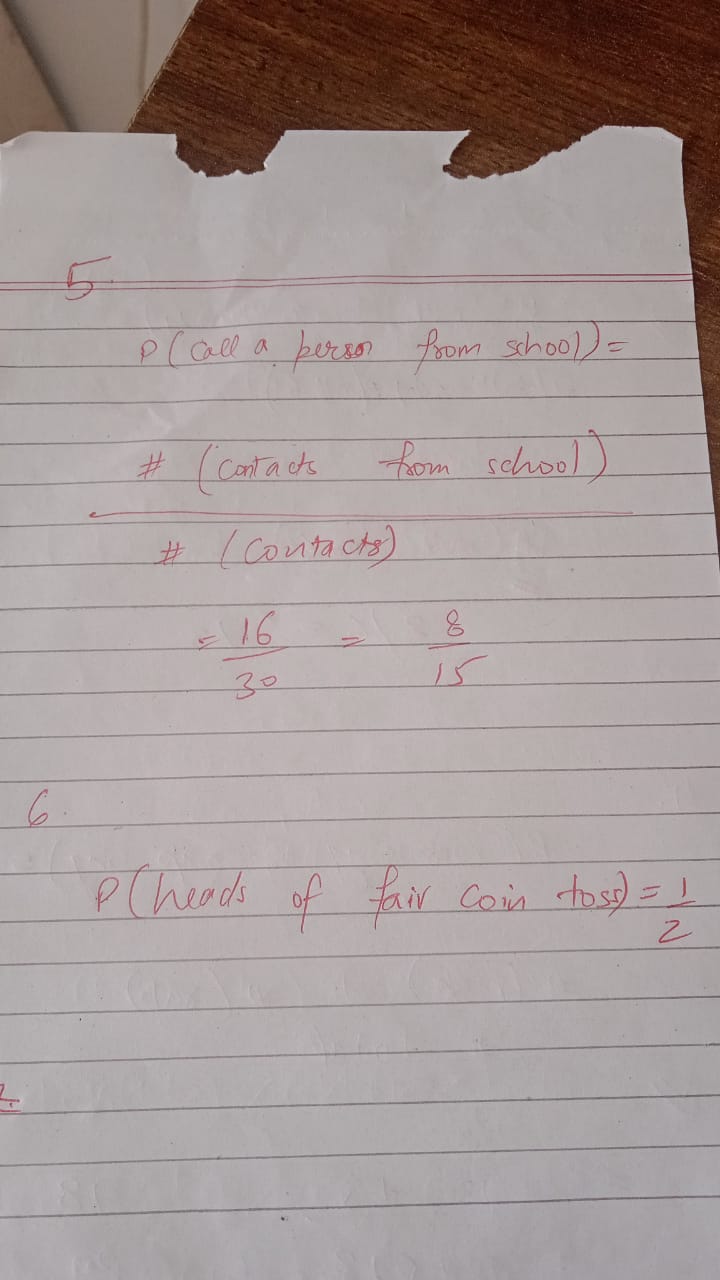 5
P(Call a person from school) =
# (Contacts from school)
# (Contacts)
= 16/30 = 8/15
6.
P(heads of fair coin toss) = 1/2